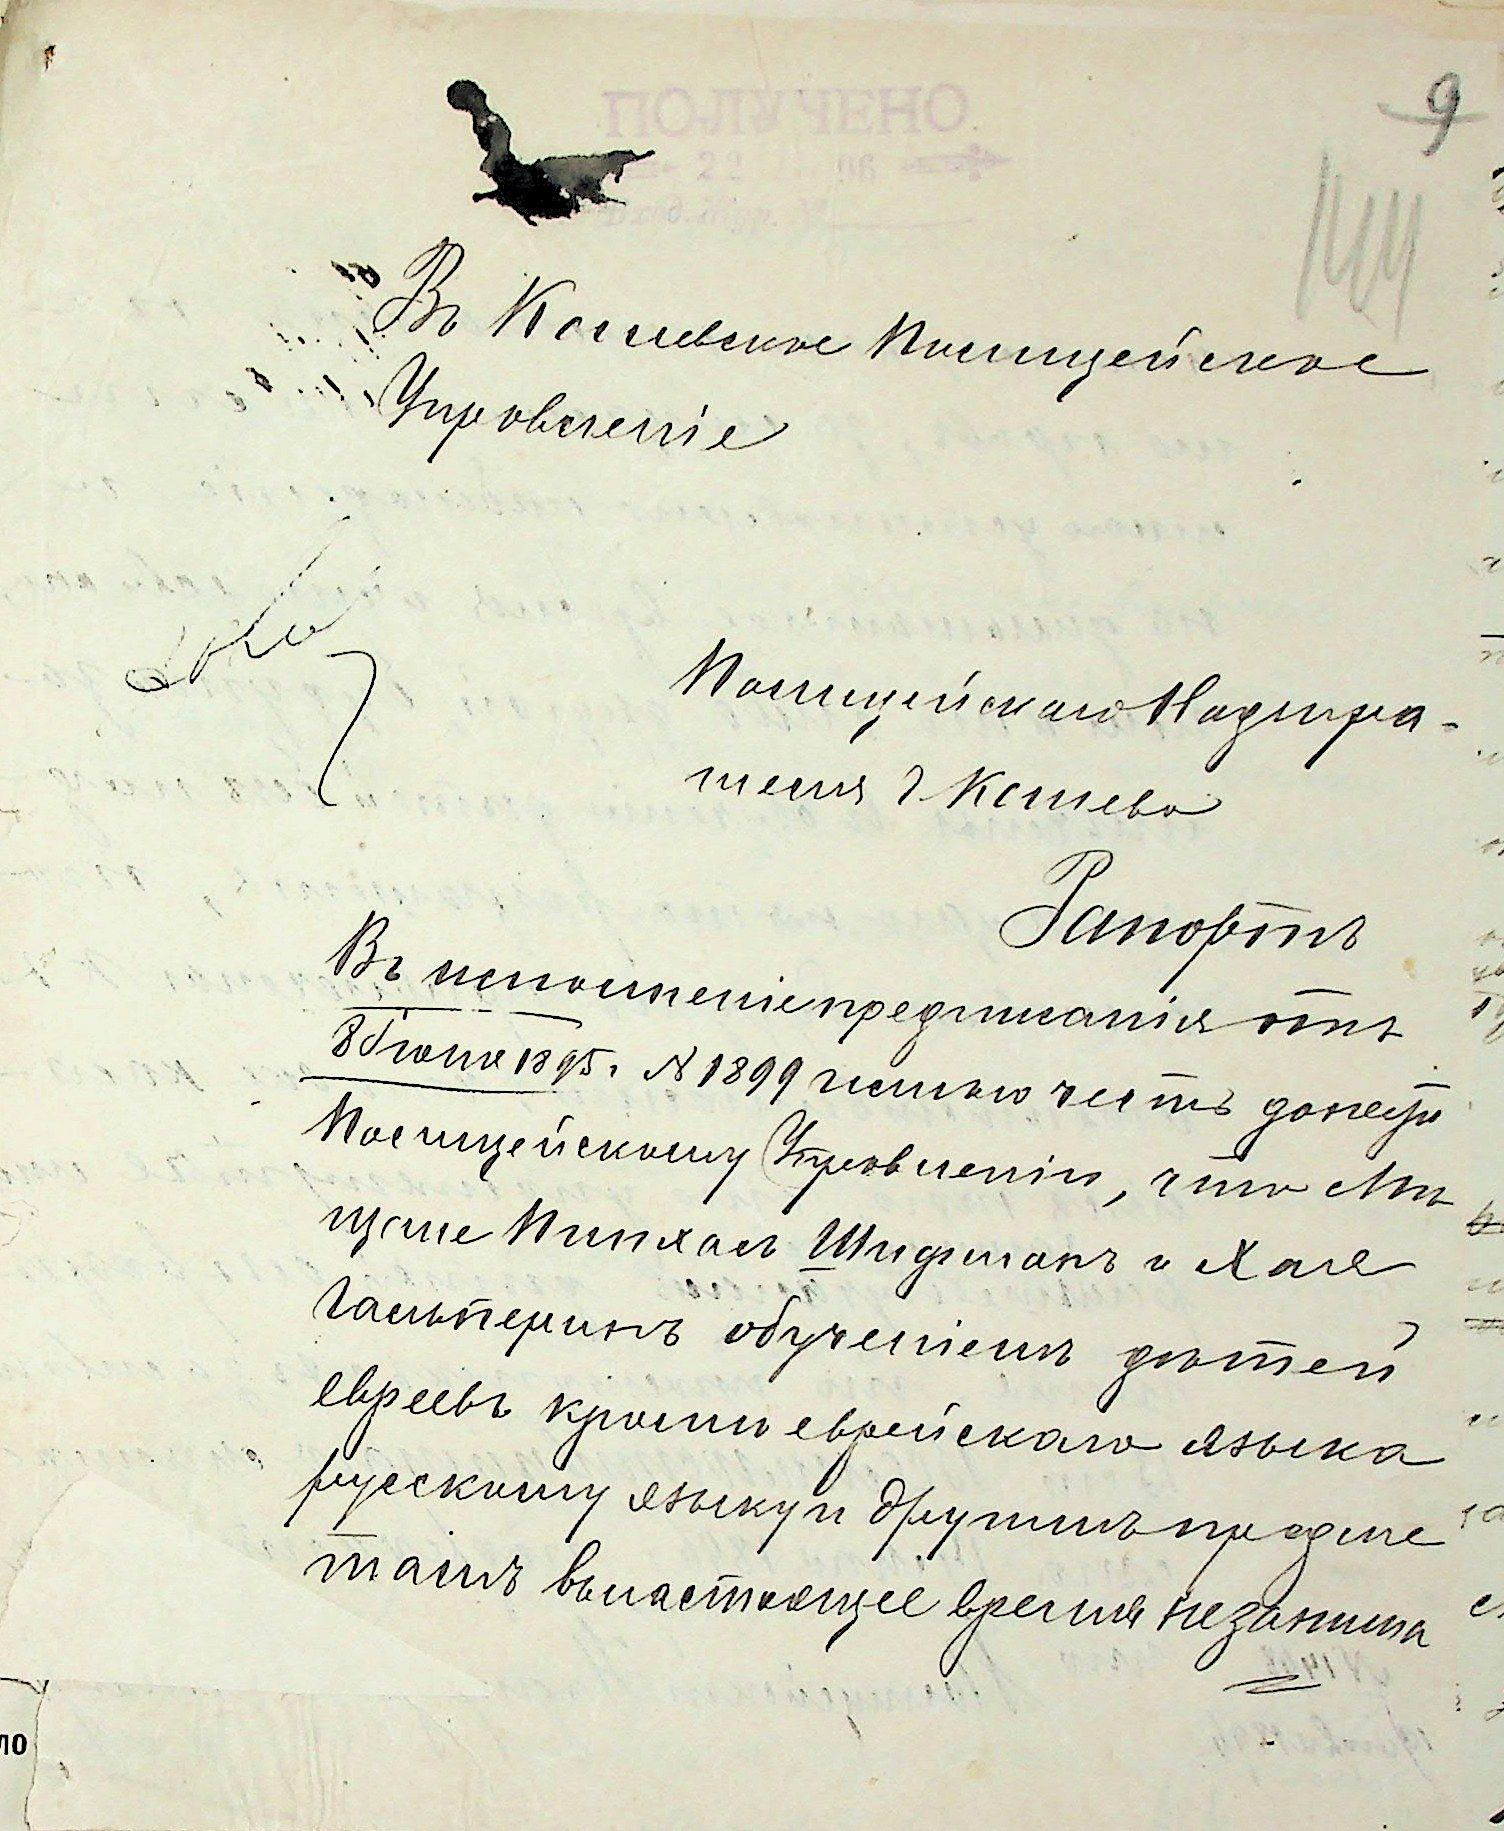 ПОЛУЧЕНО
22 96
9
Въ Коневское Полицейское
Управленіе
Полицейскаго Надзира-
теля г. Конева
Рапортъ
Въ исполненіе предписанія отъ
8 Іюня 1895 г. № 1899 имѣю честь донести
Полицейскому Управленію, что мѣ
щане Пинхасъ Шифманъ и Халя
Гальперинъ обученіемъ дѣтей
евреевъ кромѣ еврейскаго языка
русскому языку и другимъ предме
тамъ внастоящее время незанима
ло